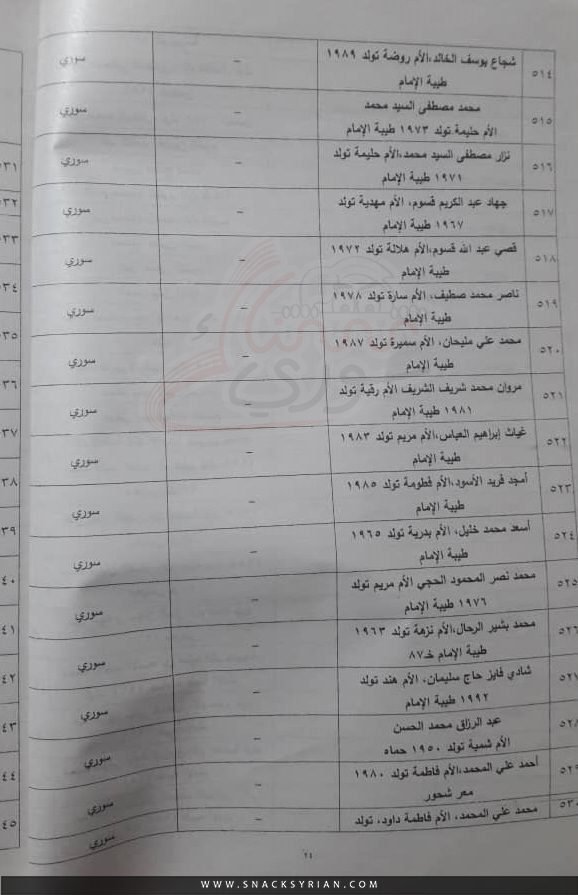 ٥١٤ شجاع يوسف الخالد،الأم روضة تولد ١٩٨٩ – سوري
طيبة الإمام
٥١٥ محمد مصطفى السيد محمد – سوري
الأم حليمة تولد ١٩٧٣ طيبة الإمام
٥١٦ نزار مصطفى السيد محمد،الأم حليمة تولد – سوري
١٩٧١ طيبة الإمام
٥١٧ جهاد عبد الكريم قسوم، الأم مهدية تولد – سوري
١٩٦٧ طيبة الإمام
٥١٨ قصي عبد الله قسوم،الأم هلالة تولد ١٩٧٢ – سوري
طيبة الإمام
٥١٩ ناصر محمد صطيف، الأم سارة تولد ١٩٧٨ – سوري
طيبة الإمام
٥٢٠ محمد علي مليحان، الأم سميرة تولد ١٩٨٧ – سوري
طيبة الإمام
٥٢١ مروان محمد شريف الشريف الأم رقية تولد – سوري
١٩٨١ طيبة الإمام
٥٢٢ غياث إبراهيم العباس،الأم مريم تولد ١٩٨٣ – سوري
طيبة الإمام
٥٢٣ أمجد فريد الأسود، الأم فطومة تولد ١٩٨٥ – سوري
طيبة الإمام
٥٢٤ أسعد محمد خليل، الأم بدرية تولد ١٩٦٥ – سوري
طيبة الإمام
٥٢٥ محمد نصر المحمود الحجي الأم مريم تولد – سوري
١٩٧٦ طيبة الإمام
٥٢٦ محمد بشير الرحال،الأم نزهة تولد ١٩٦٣ – سوري
طيبة الإمام خـ٨٧
٥٢٧ شادي فايز حاج سليمان، الأم هند تولد – سوري
١٩٩٢ طيبة الإمام
٥٢٨ عبد الرزاق محمد الحسن – سوري
الأم شمية تولد ١٩٥٠ حماه
٥٢٩ أحمد علي المحمد،الأم فاطمة تولد ١٩٨٠ – سوري
معر شحور
٥٣٠ محمد علي المحمد، الأم فاطمة داود، تولد – سوري
٥٣١
٥٣٢
٥٣٣
٥٣٤
٥٣٥
٥٣٦
٥٣٧
٥٣٨
٥٣٩
٥٤٠
٥٤١
٥٤٢
٥٤٣
٥٤٤
٥٤٥
٢٤
WWW.SNACKSYRIAN.COM